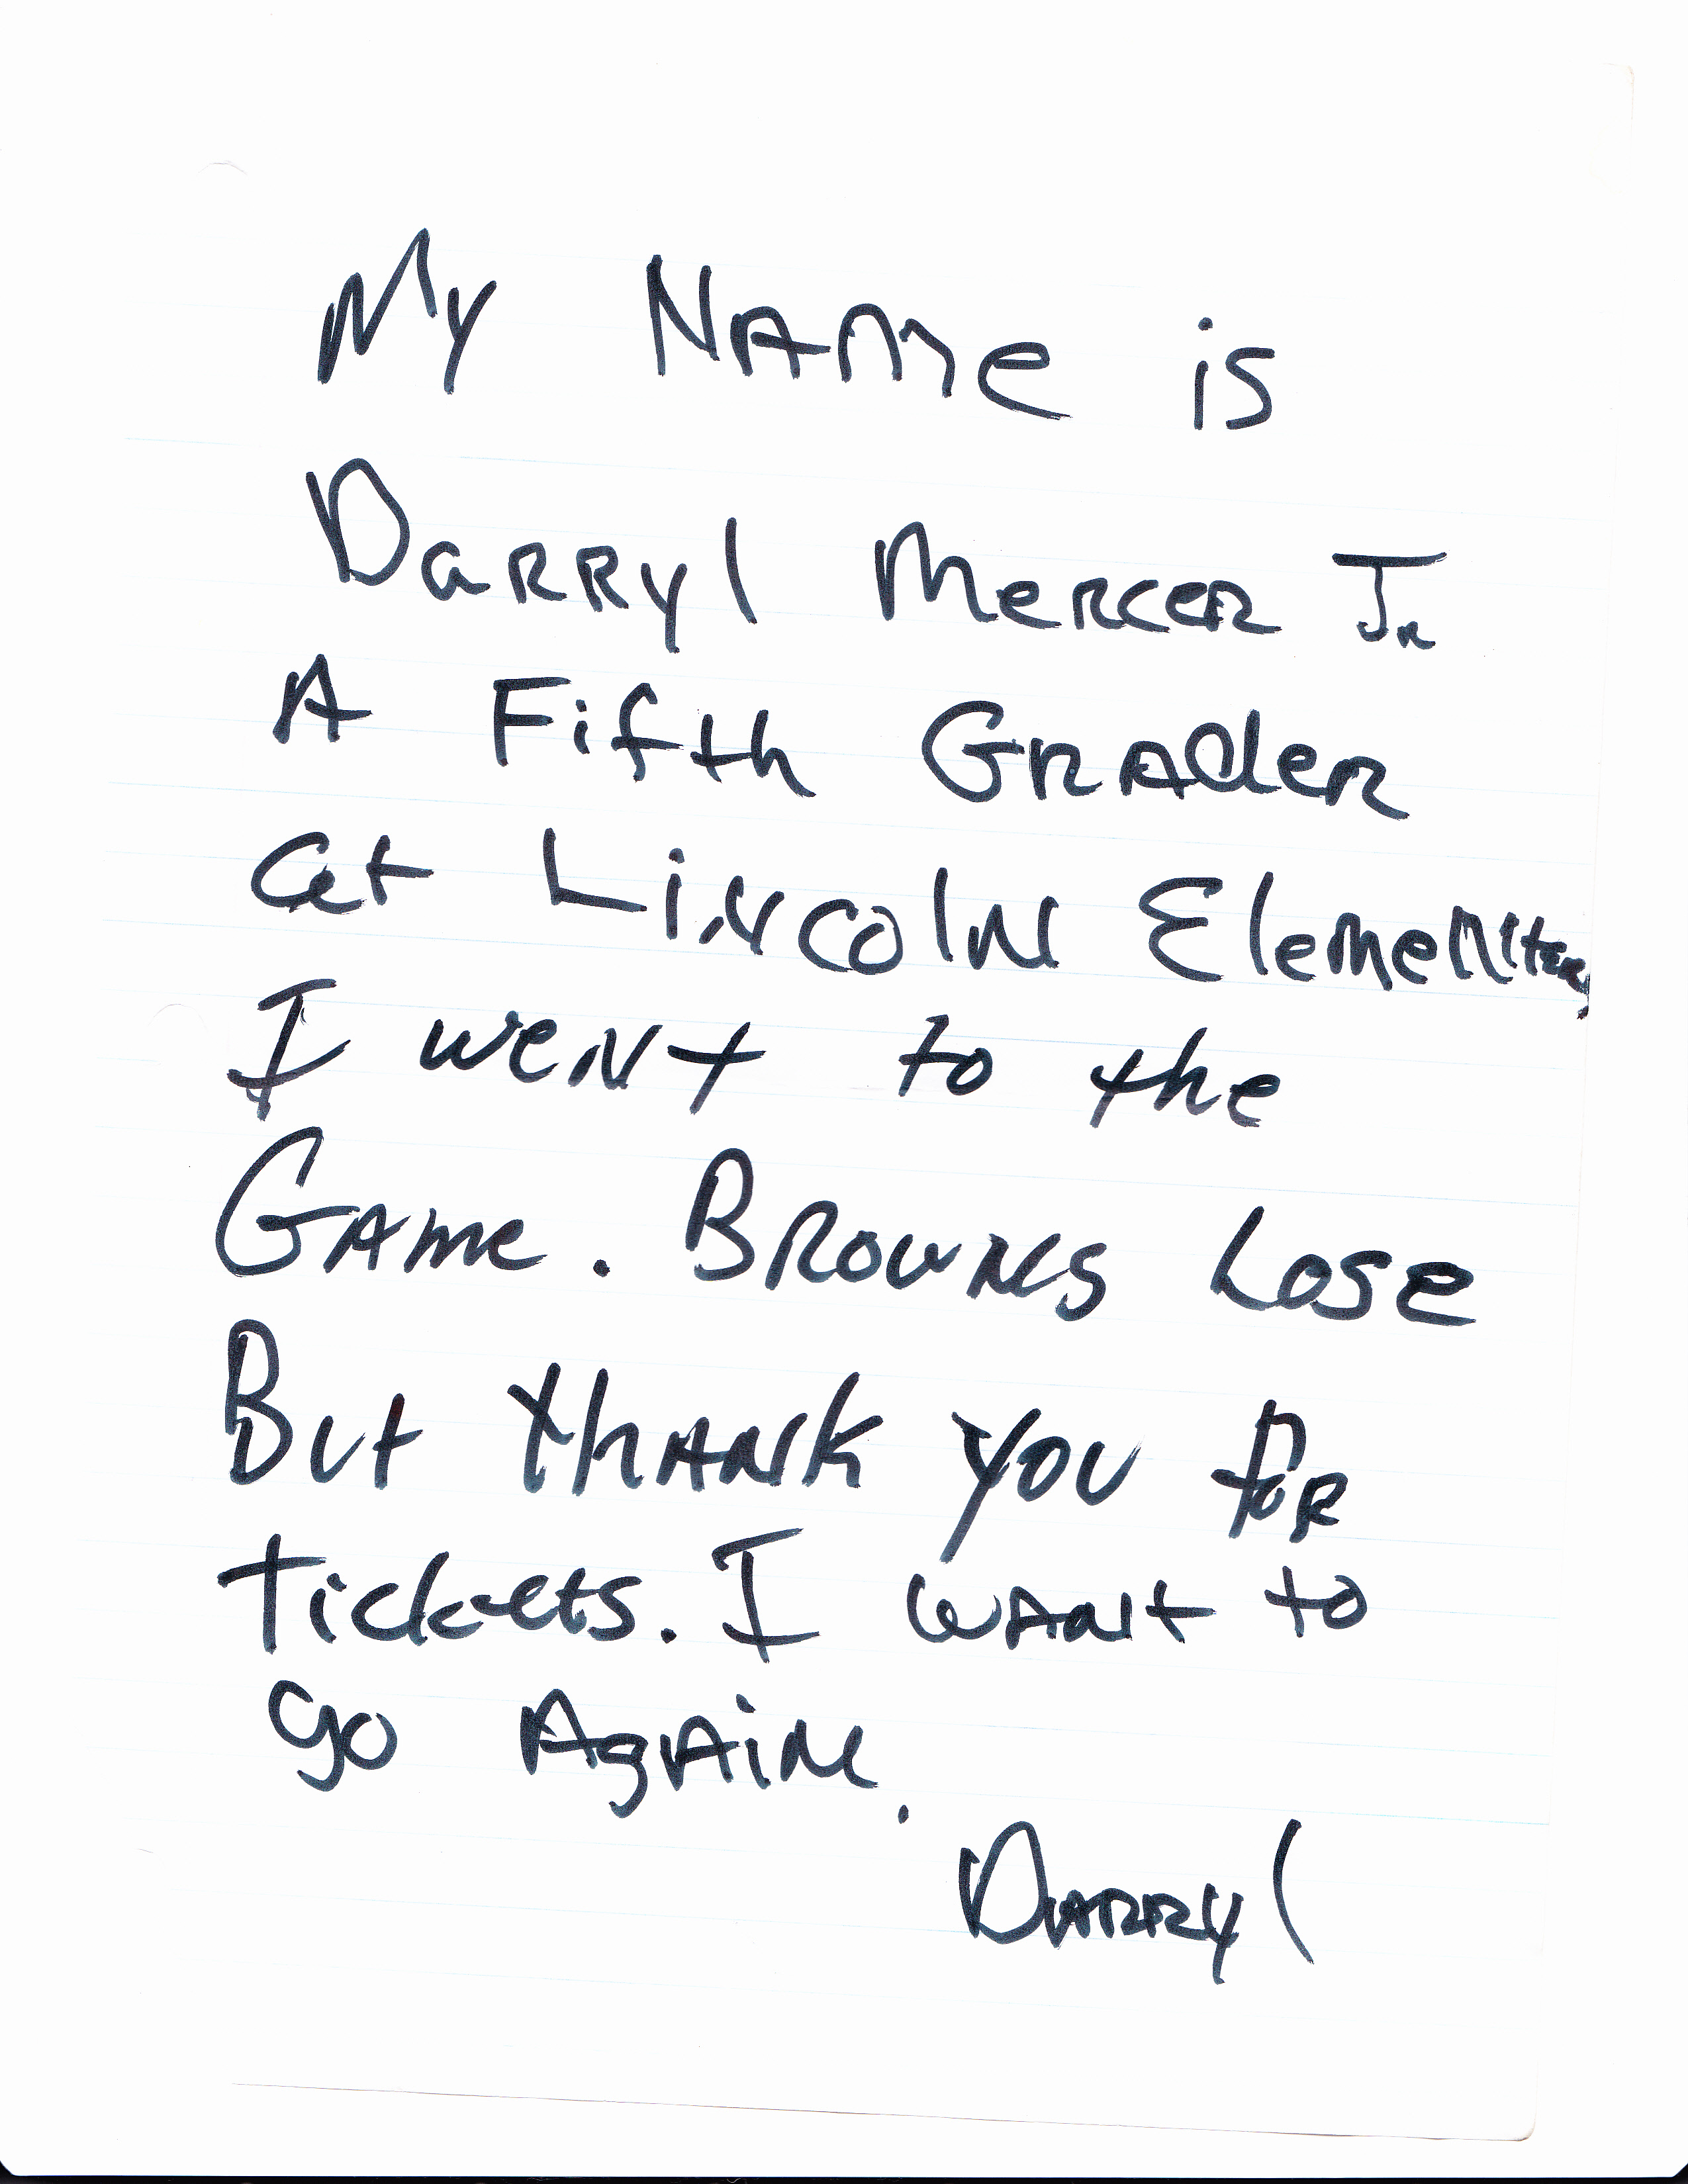 My Name is
Darryl Mercer Jr
A Fifth Grader
at Lincoln Elementery
I went to the
Game. Browns Lose
But thank you for
tickets. I want to
go Again.
Darryl